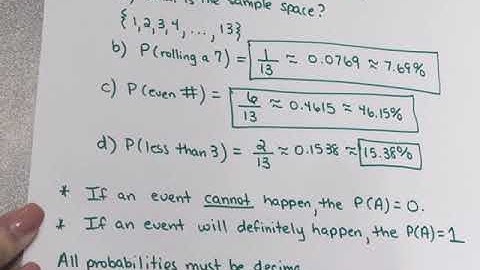 is the sample space?
{1,2,3,4,...,13}
b) P(rolling a 7) = 1/13 ≈ 0.0769 ≈ 7.69%
c) P(even #) = 6/13 ≈ 0.4615 ≈ 46.15%
d) P(less than 3) = 2/13 ≈ 0.1538 ≈ 15.38%
* If an event cannot happen, the P(A)=0.
* If an event will definitely happen, the P(A)=1
All probabilities must be